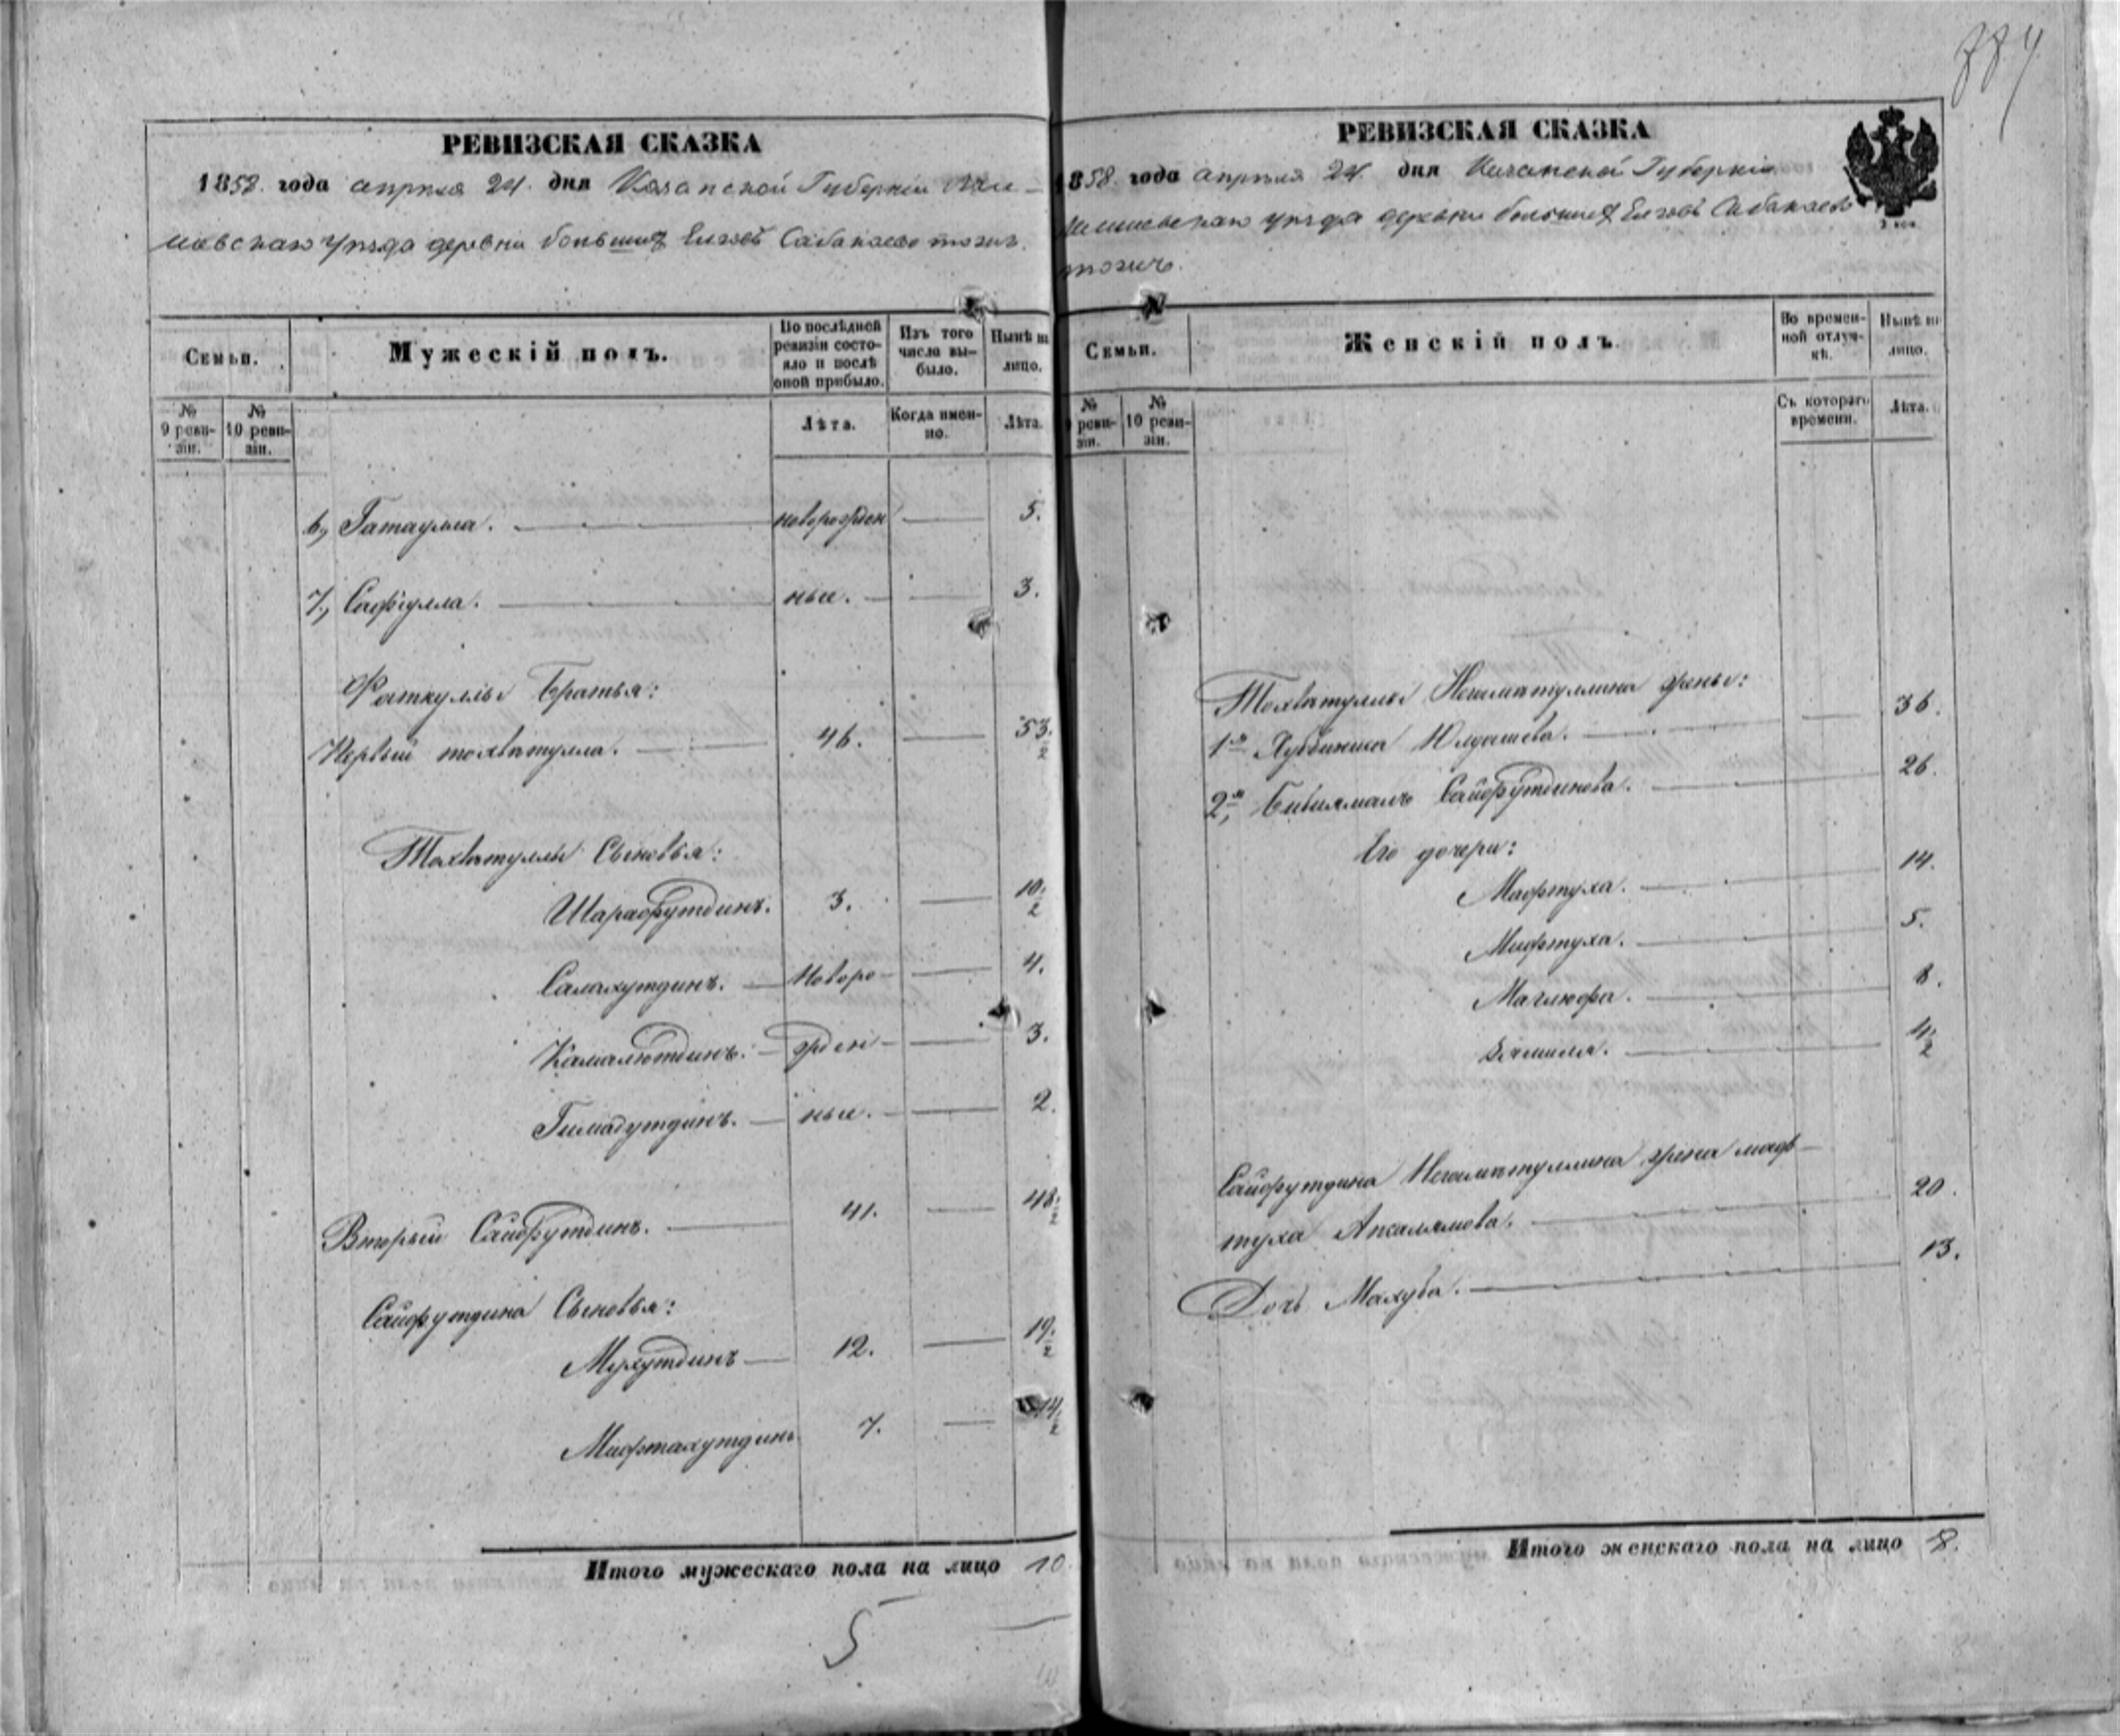 884
РЕВИЗСКАЯ СКАЗКА
1858. года апреля 24. дня Казанской Губернiи Маи-
мовскаго уезда деревни большихъ Елговъ Сабакаево тожъ.
Семьи.
Мужескiй полъ.
По послѣдней ревизiи состо-
яло и послѣ оной прибыло.
Изъ того числа вы-
было.
Нынѣ на лицо.
№ 9 реви-
зiи.
№ 10 реви-
зiи.
Лѣта.
Когда имен-
но.
Лѣта.
6, Гатаулла. новорожден 5.
7, Сафiулла. ные. 3.
Фаткуллы братья:
Первый тохватулла. 46. 53 1/2
Тохватуллы Сыновья:
Шарафутдинъ. 3. 10 1/2
Салахутдинъ. Новоро- 4.
Камалютдинъ. жден- 3.
Гимадутдинъ. ные. 2.
Вторый Сайфутдинъ. 41. 48 1/2
Сайфутдина Сыновья:
Мухутдинъ 12. 19 1/2
Мифтахутдинъ 7. 14 1/2
Итого мужескаго пола на лицо 10.
5
РЕВИЗСКАЯ СКАЗКА
1858. года апреля 24. дня Казанской Губернiи
уезда деревни большихъ Елговъ Сабакаево
тожъ.
Семьи.
Женскiй полъ.
Во времен-
ной отлуч-
кѣ.
Нынѣ на лицо.
№ 9 реви-
зiи.
№ 10 реви-
зiи.
Съ котораго времени.
Лѣта.
Тохватуллы Негаматуллина жены:
1я Юлдашева. 36.
2я, Бибиямалъ Сайфутдинова. 26.
Его дочери:
Мафтуха. 14.
Мифтуха. 5.
Маглюфа. 8.
1/2
Сайфутдина Негаматуллина жена маф-
туха Апкалямова. 20.
Дочь Махуба. 13.
Итого женскаго пола на лицо 8.